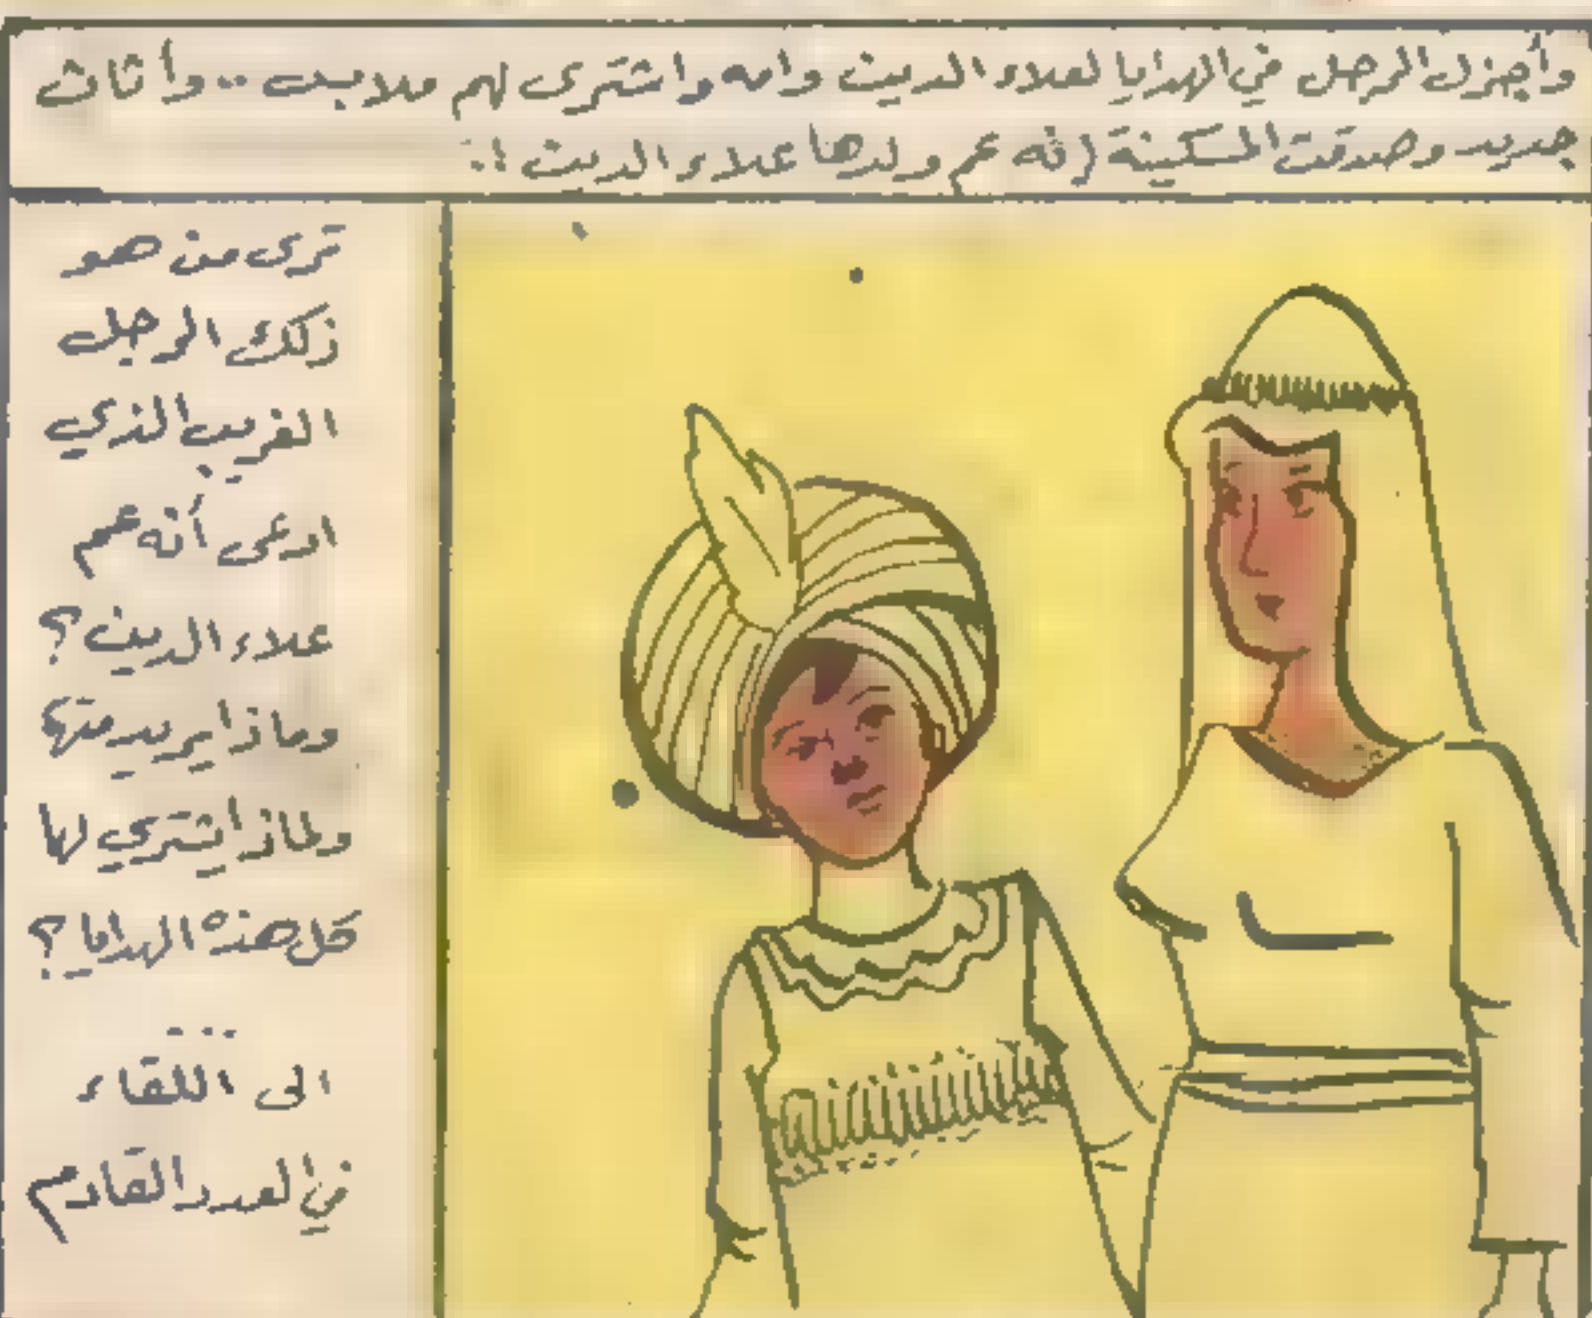 وأجزل الرجل في الهدايا لعلاء الدين وامه واشترى لهم ملابس .. وأثاث
جديد وصدقت المسكينة انه عم ولدها علاء الدين !.
ترى من هو
ذلك الرجل
الغريب الذي
ادعى أنه عم
علاء الدين ؟
وماذا يريد منها
ولماذا يشتري لها
كل هذه الهدايا ؟
...
الى اللقاء
في العدد القادم